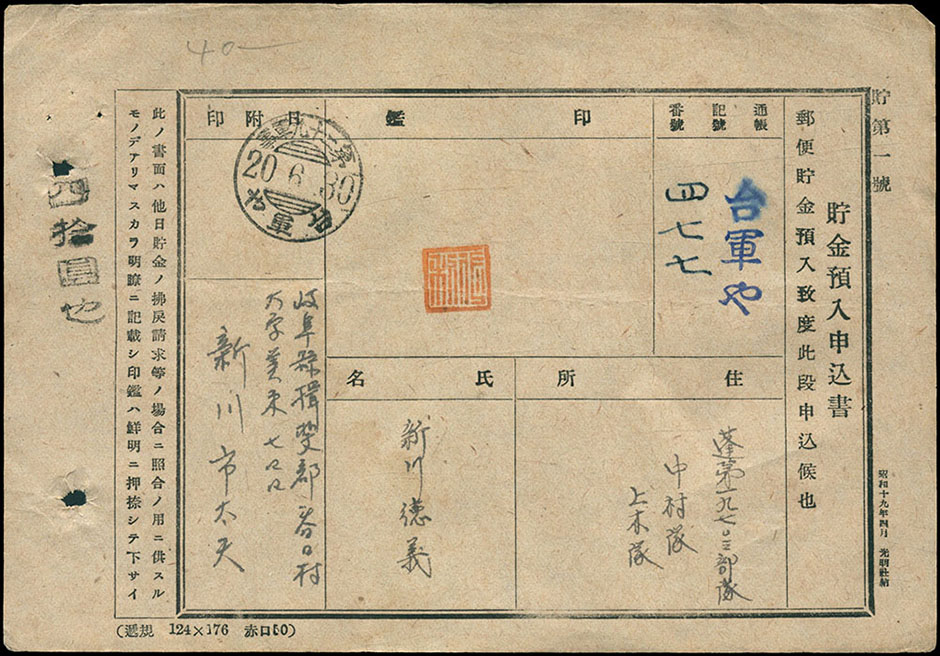 貯第一號
貯金預入申込書
郵便貯金預入致度此段申込候也
昭和十九年四月 光明社納
通帳
記號
番號
台軍や
四七七
印鑑
日附印
20.6.30
台軍
住所
蓬第一九七〇三部隊
中村隊
上木隊
氏名
新川德義
岐阜縣揖斐郡春日村
新川市太夫
此ノ書面ハ他日貯金ノ拂戻請求等ノ場合ニ照合ノ用ニ供スル
モノデアリマスカラ明瞭ニ記載シ印鑑ハ鮮明ニ押捺シテ下サイ
四拾圓也
40—
(遞規 124×176 赤口50)